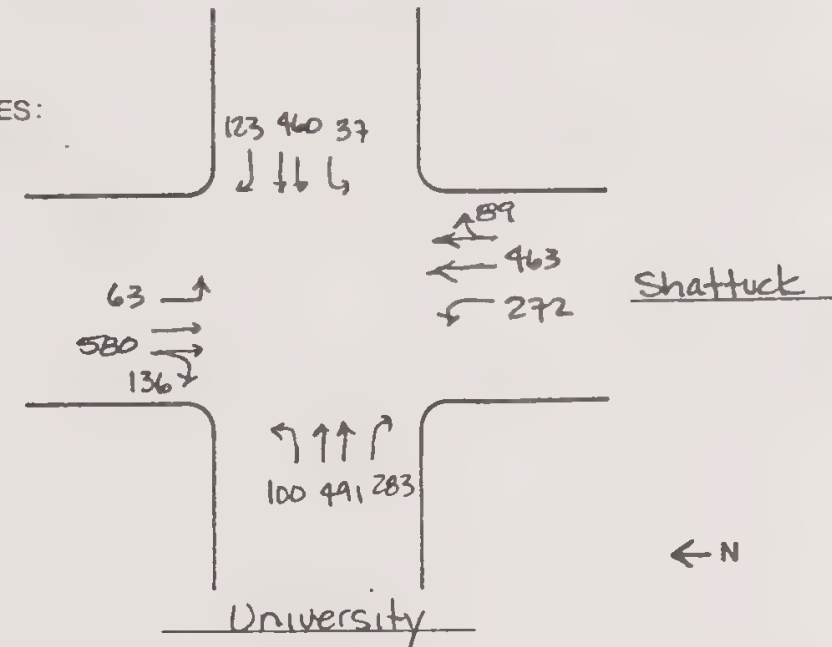 ES:
123 460 37
89
463
272
Shattuck
63
580
136
100 491 283
N
University